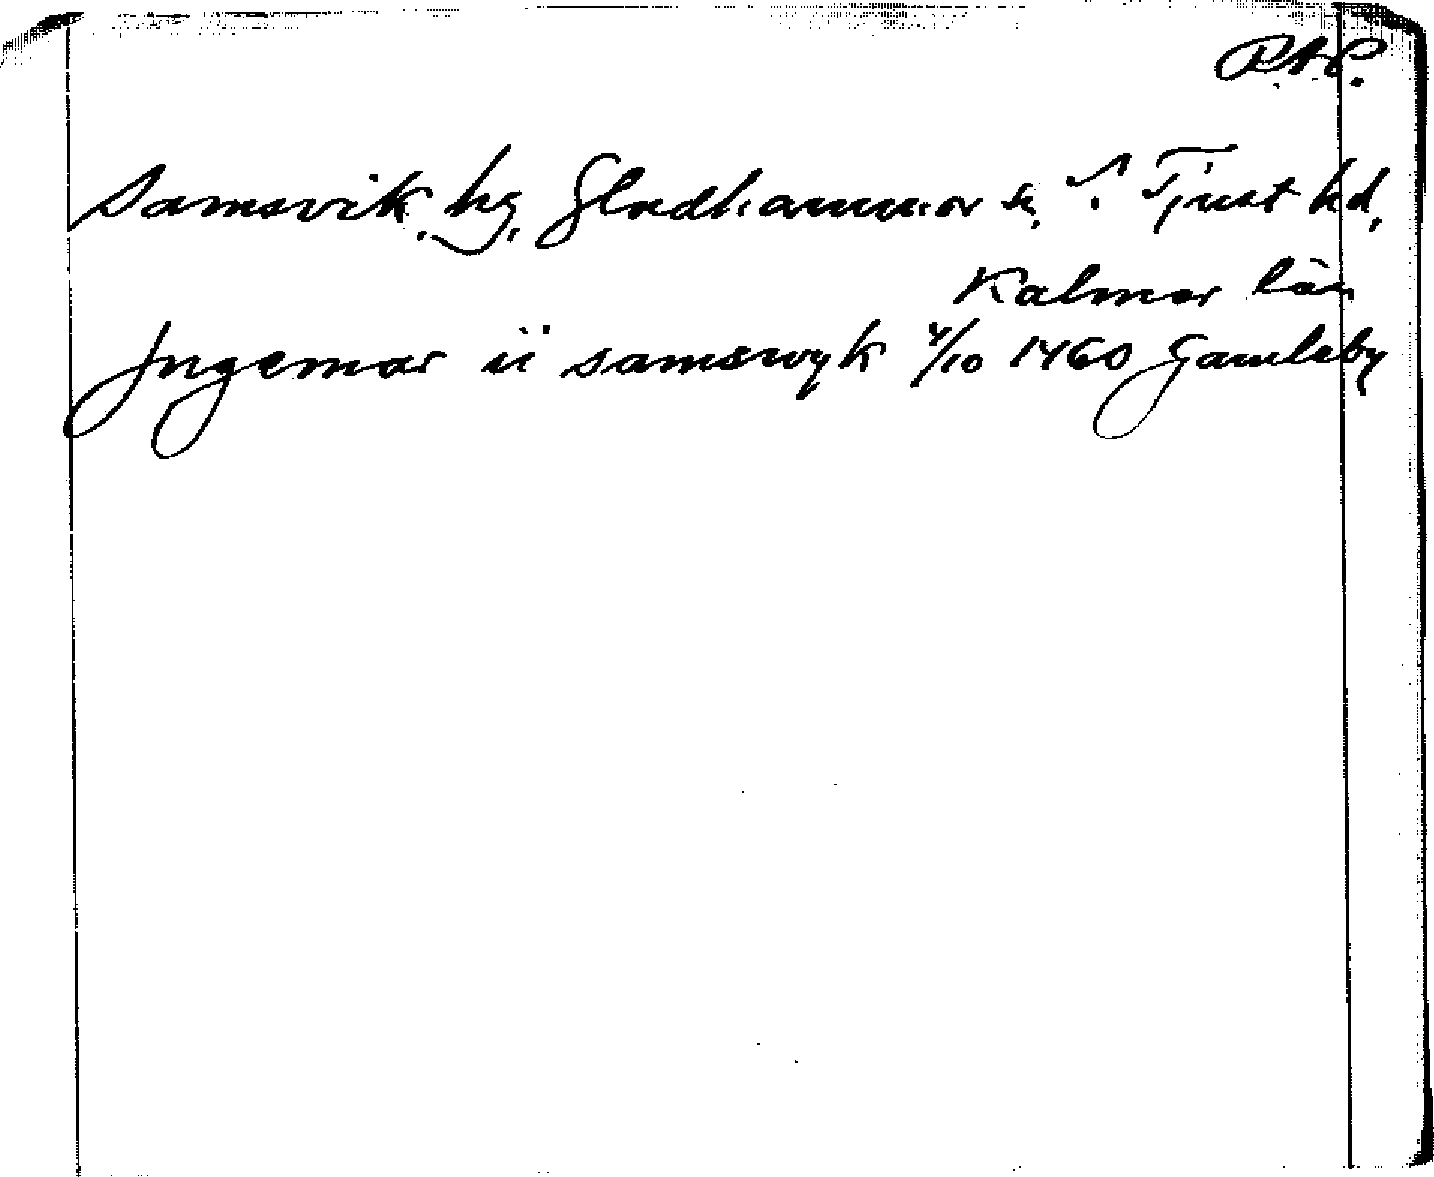 R.A.P.
Samsvik, hg, Gladhammar sn, S. Tjust hd,
Kalmar län
Ingemar ii samswyk 4/10 1460 Gamleby